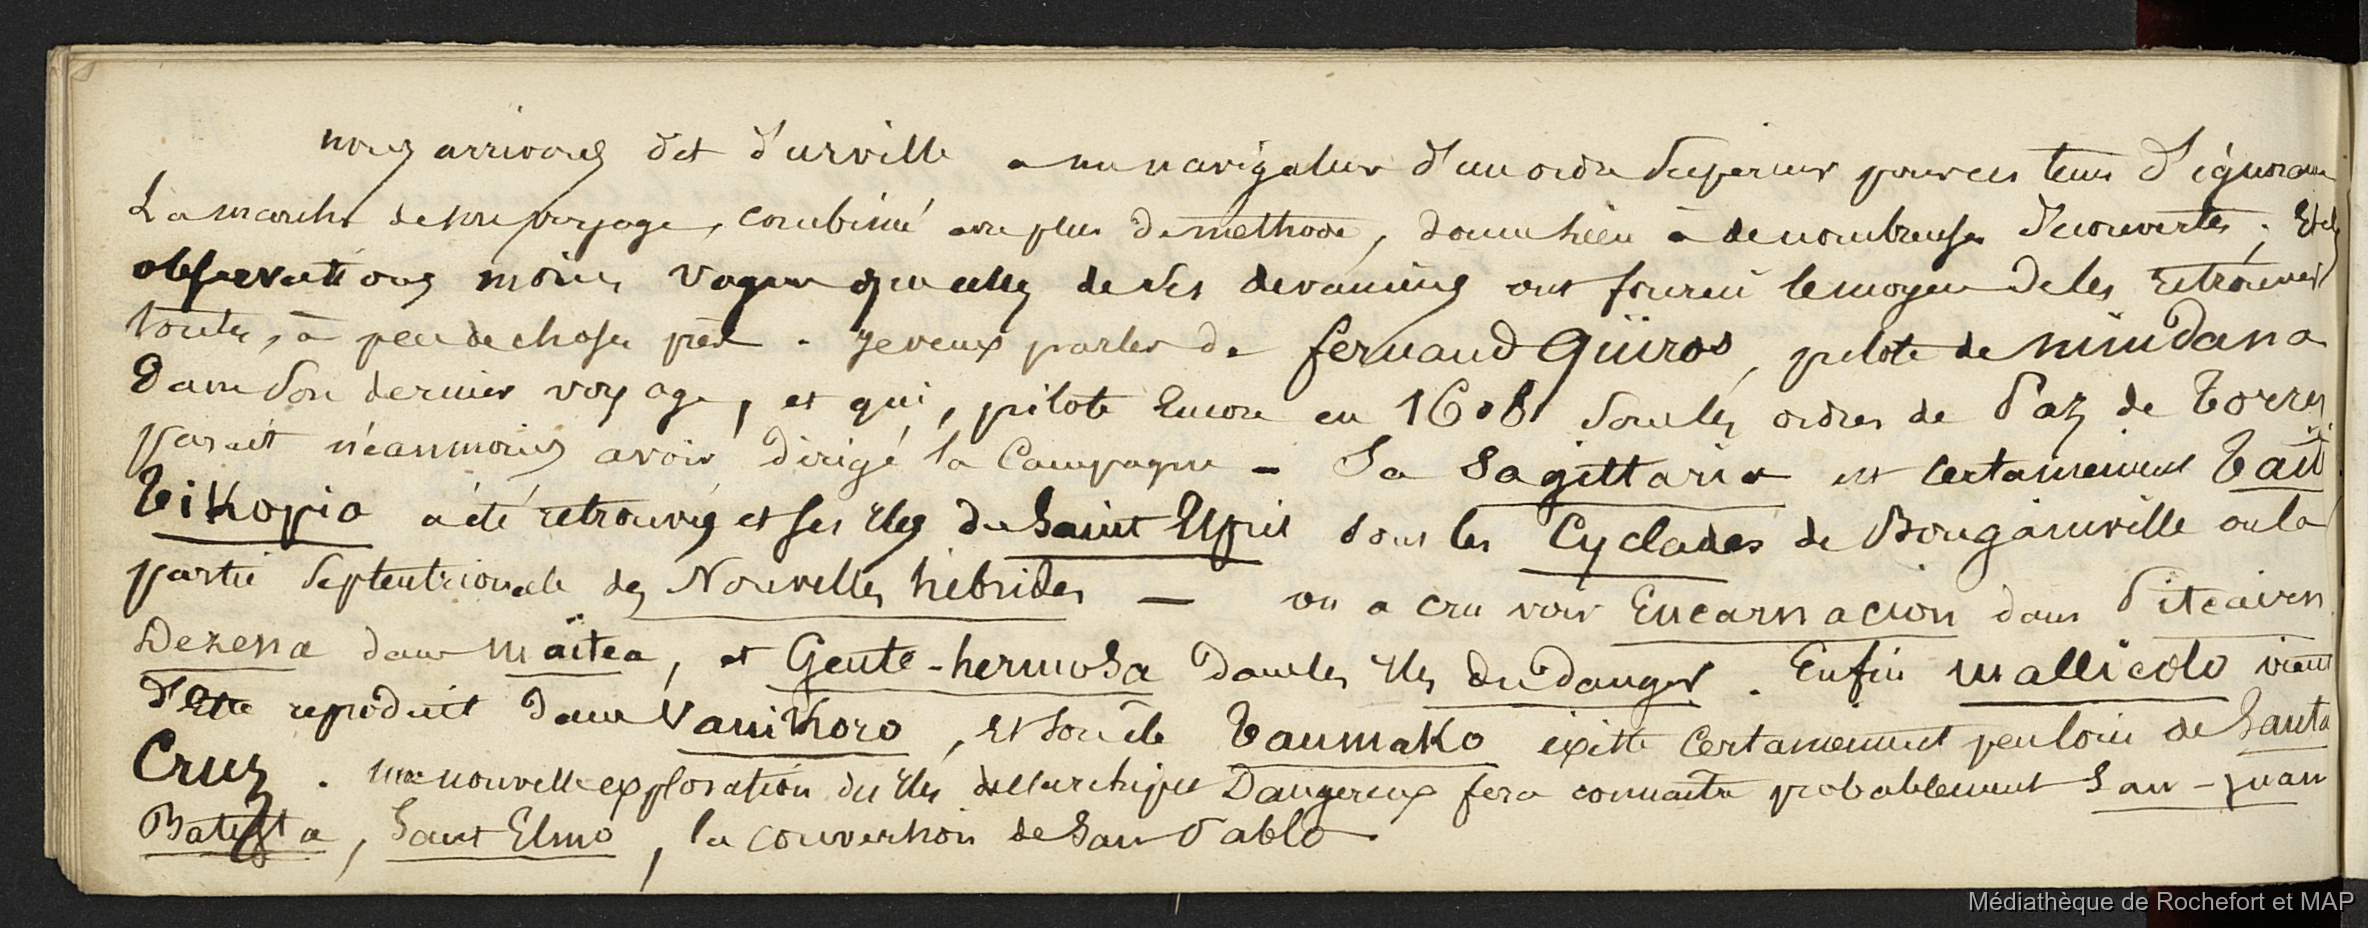 nous arrivons dit d'urville a un navigateur d'un ordre superieur pour ces tems d'ignorance
La marche de son voyage, combiné avec plus de methode, donna lieu à de nombreuses découvertes ; Et des
observations moins vagues que celles de ses devanciers ont fourni le moyen de les retrouver
toutes, à peu de choses près. je veux parler de fernand Quiros, pilote de mindana
dans son dernier voyage, et qui, pilote Encore en 1608 sous les ordres de Paz de Torres
parait néanmoins avoir dirigé la Campagne - Sa Sagittaria est certainement Taiti
Tikopia a été retrouvée et ses Iles du Saint Esprit sont les Cyclades de Bougainville ou la
partie septentrionale des Nouvelles hébrides — on a cru voir Encarnacion dans Pitcairn
Dezena dans maïtea, et Gente-hermosa dans les Iles du Danger. Enfin mallicolo vient
d'Etre reproduit dans Vanikoro, Et son île Taumako existe certainement peu loin de Santa
Cruz. une nouvelle exploration des Iles de l'archipel Dangereux fera connaitre probablement San-juan
Batista, Sant Elmo, la conversion de San Pablo.
Médiathèque de Rochefort et MAP